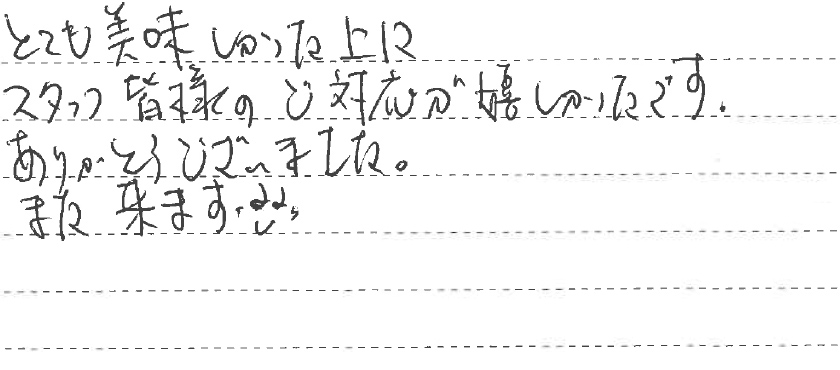 とても美味しかった上に
スタッフ皆様のご対応が嬉しかったです.
ありがとうございました。
また来ます.